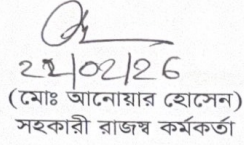 22/02/26
(মোঃ আনোয়ার হোসেন)
সহকারী রাজস্ব কর্মকর্তা